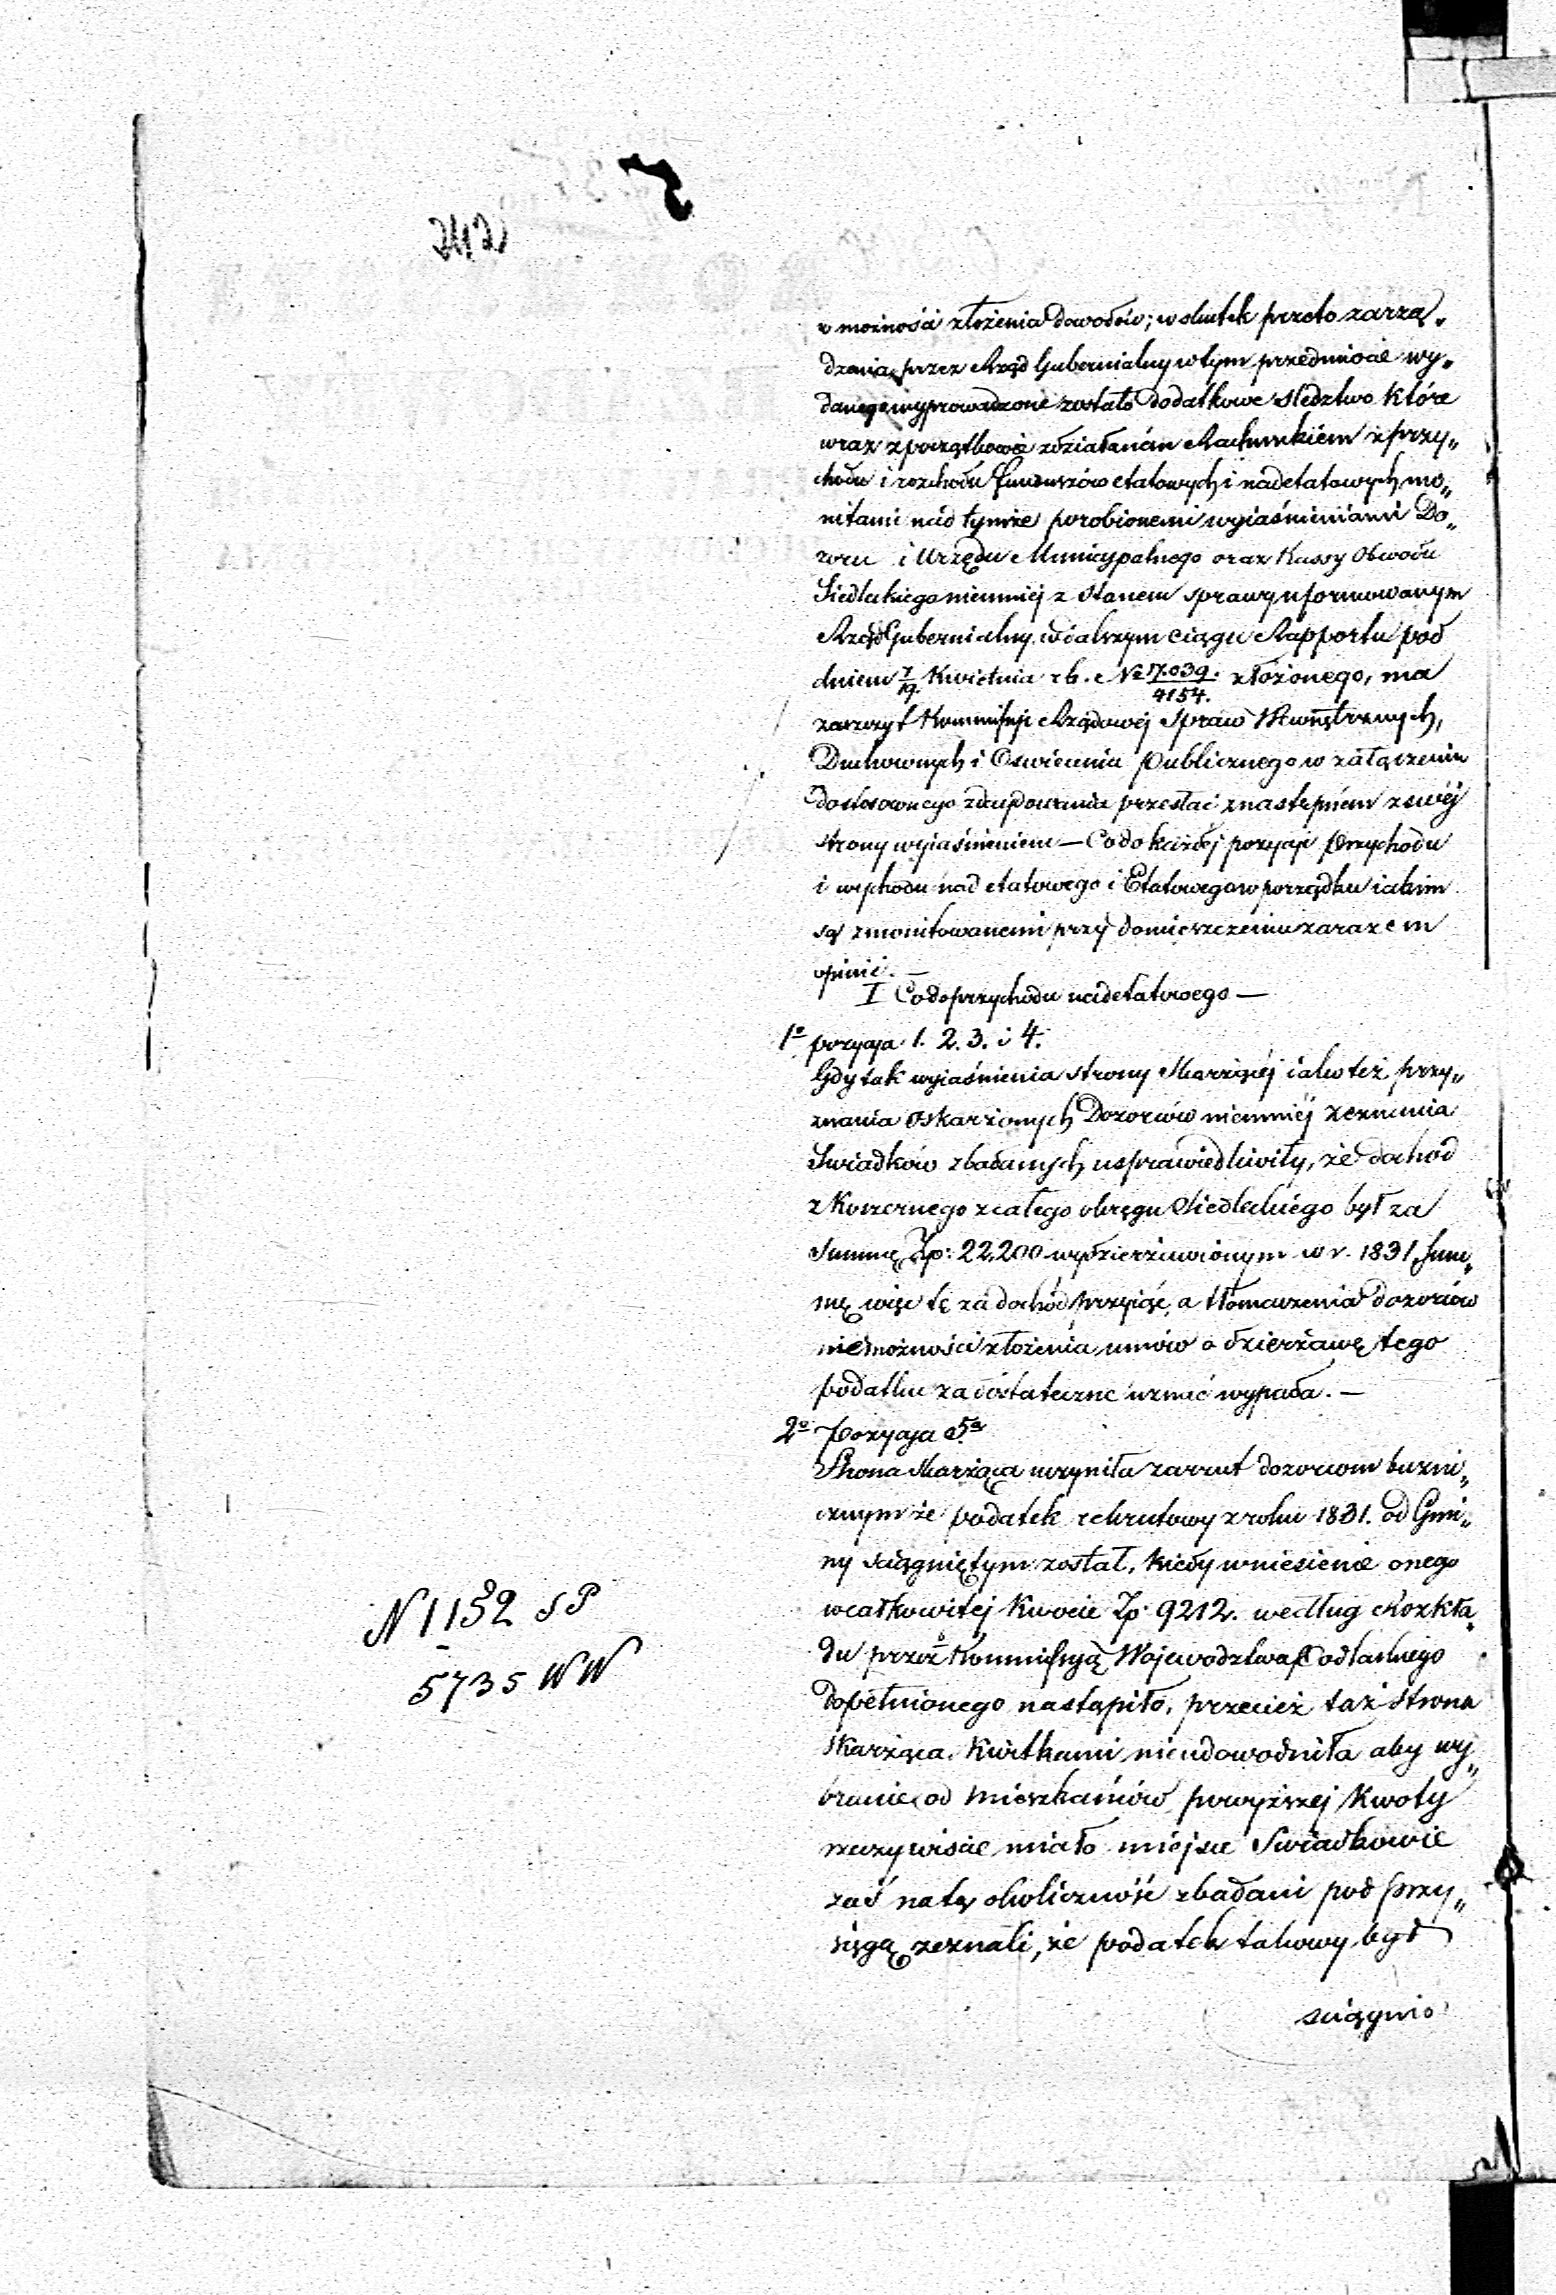 242
w możności złożenia Dowodów; w skutek przeto zarzą„
dzenia przez Rząd Gubernialny w tym przedmiocie wy„
danego wyprowadzone zostało dodatkowe sledztwo które
wraz z początkowo zdziałanem Rachunkiem z przy„
chodu i rozchodu funduszów etatowych i nadetatowych mo„
nitami nad tymże porobionemi wyiaśnieniami Do„
zoru i Urzędu Municypalnego oraz Kassy Obwodu
Siedleckiego niemniej z Stanem sprawy uformowanym
Rząd Gubernialny w dalszym ciągu Rapportu pod
dniem 7/19 Kwietnia r b. No 17.039./4154. złożonego, ma
zaszczyt Kommissyi Rządowej Spraw Wewnętrznych,
Duchownych i Oswiecenia Publicznego w załączeniu
dostosownego przesłać z następnem z swéj
strony wyiaśnieniem — Co do każdej pozycyi Przychodu
i rozchodu nad etatowego i Etatowego w porządku iakim
są zmonitowanemi przy domieszczeniu zarazem
opinii. —
I Co do przychodu nadetatowego —
1o pozycya 1. 2. 3. i 4.
Gdy tak wyiaśnienia strony Skarżącéj iako też przy„
znania oskarżonych Dozorców niemniéj zeznania
Swiadków zbadanych usprawiedliwiły, że dochód
z Koszernego z całego okręgu Siedleckiego był za
Summę Zp: 22,200 wydzierżawionym w r. 1831, Sum„
mę więc tę za dochód przyiąć, a tłomaczenia dozorców
niemożności złożenia umów o dzierżawę tego
podatku za dostateczne uznać wypada. —
2o Pozycya 5a
Strona Skarżąca uczyniła zarzut dozorcom bużni„
cznym że podatek rekrutowy z roku 1831. od Gmi„
ny sciągniętym został, kiedy wniesienie onego
w całkowitéj Kwocie Zp: 9212. według Rozkła„
du przez Kommissyą Wojewodztwa Podlaskiego
dopełnionego nastąpiło, przecież taż strona
skarżąca. Kwitkami nieudowodniła aby wy„
branie od mieszkańców powyższej Kwoty
rzeczywiscie miało miéjsce Swiadkowie
zaś na tę okoliczność zbadani pod przy„
sięgą zeznali, że podatek takowy był
sciągnio
N 1132 SP
5735 WW